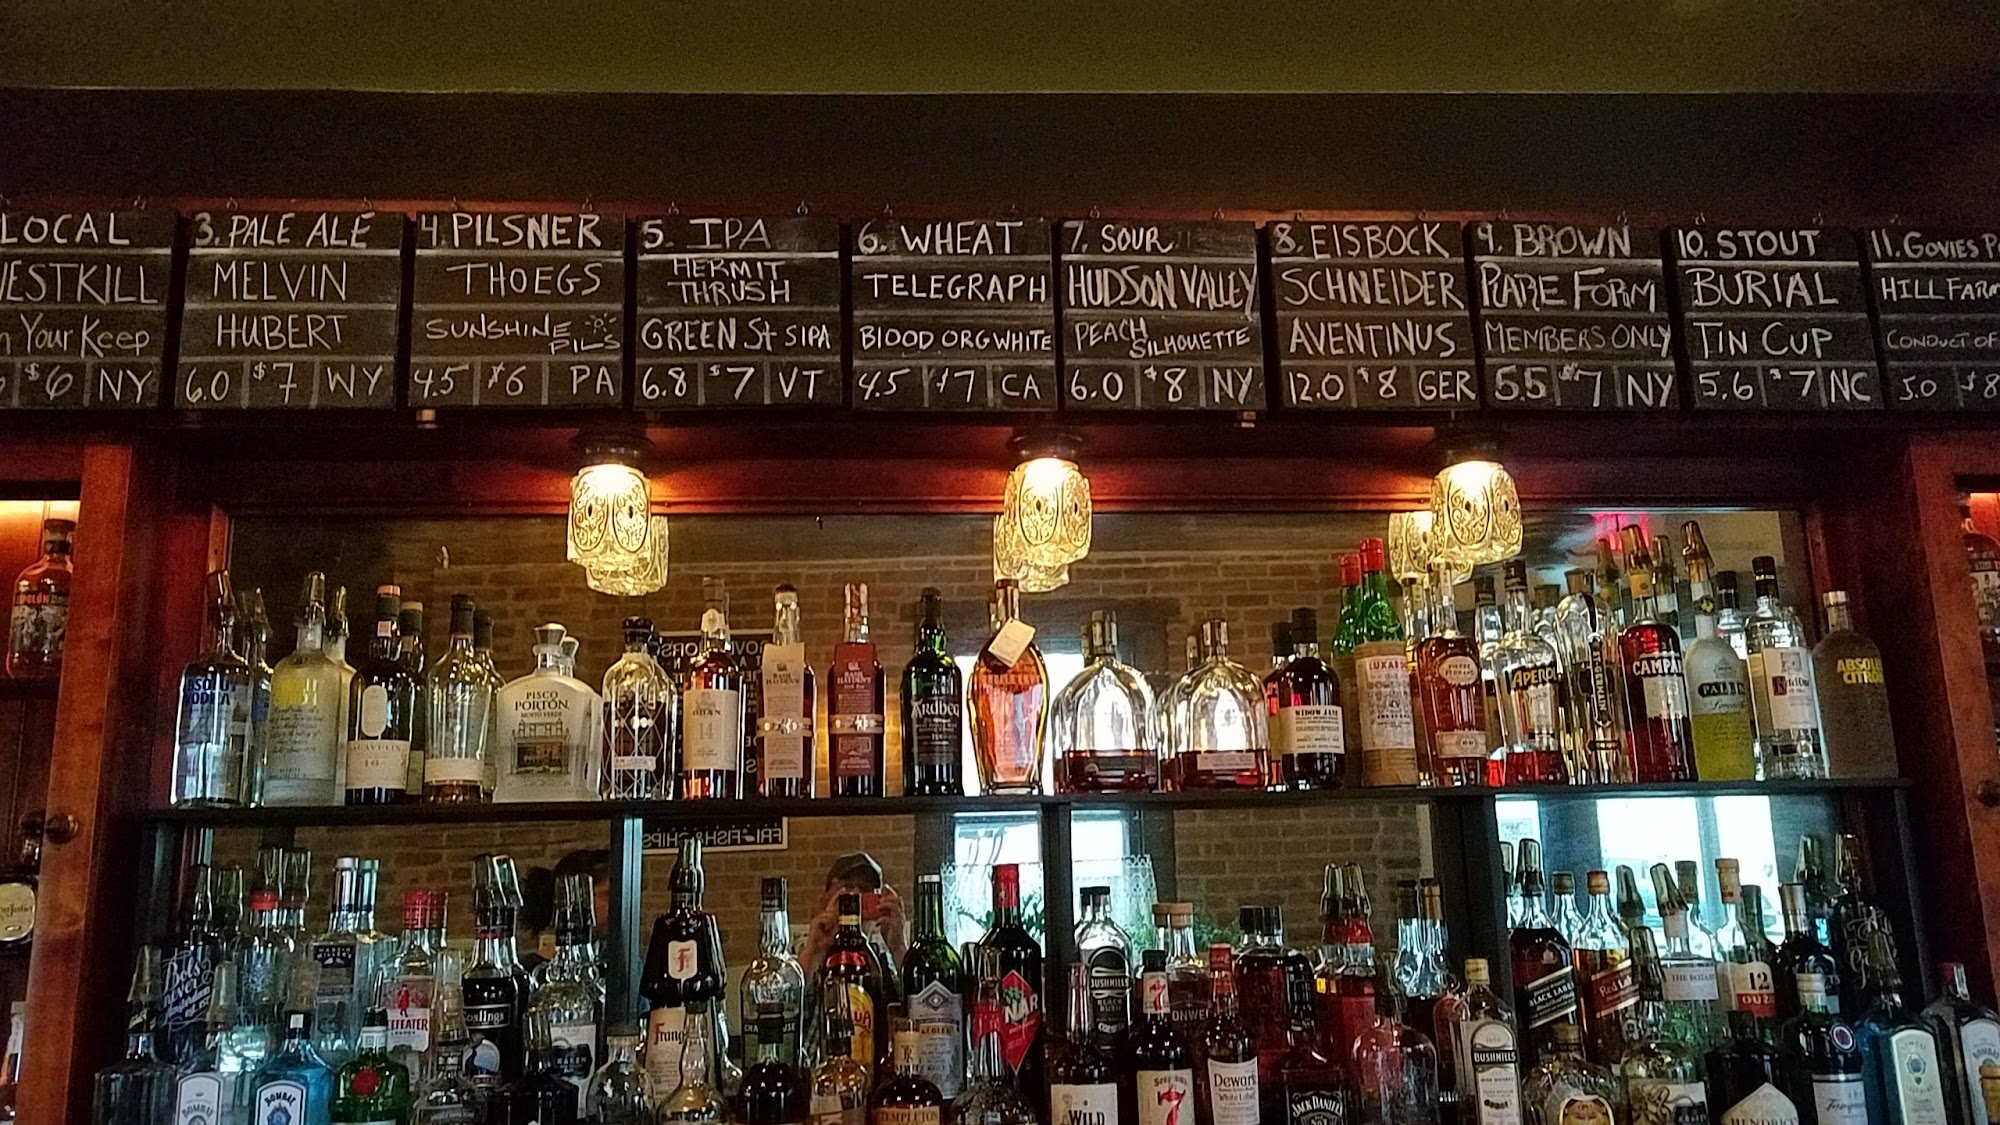 LOCAL
ESTKILL
Your Keep
$6 NY
3. PALE ALE
MELVIN
HUBERT
6.0 $7 WY
4. PILSNER
THOEGS
SUNSHINE
PILS
4.5 $6 PA
5. IPA
HERMIT
THRUSH
GREEN St SIPA
6.8 $7 VT
6. WHEAT
TELEGRAPH
BLOOD ORG WHITE
4.5 $7 CA
7. SOUR
HUDSON VALLEY
PEACH
SILHOUETTE
6.0 $8 NY
8. EISBOCK
SCHNEIDER
AVENTINUS
12.0 $8 GER
9. BROWN
RARE FORM
MEMBERS ONLY
5.5 $7 NY
10. STOUT
BURIAL
TIN CUP
5.6 $7 NC
11. GOVIES P
HILL FARM
CONDUCT OF
5.0 $8
ABSOLUT
VODKA
PISCO
PORTÓN
MOSTO VERDE
OBAN
14
BASIL
HAYDEN'S
BASIL
HAYDEN'S
Ardbeg
WIDOW JANE
LUXAR
PIERRE
FERRAND
APEROL
CAMPA
ABSOLUT
CITRON
FRI FISH & CHIPS
Bols
never
EEFEATER
Goslings
BUSHMILLS
BLACK
BUSH
BLACK LABEL
Red LA
12
OUZO
BOMBAY
BOMBAY
TEMPLETON
WILD
7
Dewar's
White Label
JACK DANIEL'S
BUSHMILLS
HENDRI